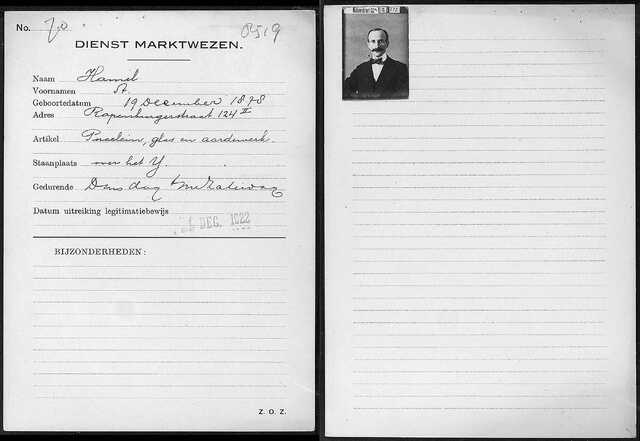 No. 70 0519
DIENST MARKTWEZEN.
Naam Hamel
Voornamen A.
Geboortedatum 19 December 1878
Adres Rapenburgerstraat 124 II
Artikel Porcelein, glas en aardewerk.
Staanplaats over het Y.
Gedurende Dinsdag t/m Zaterdag
Datum uitreiking legitimatiebewijs
DEC. 1922
BIJZONDERHEDEN:
Z. O. Z.